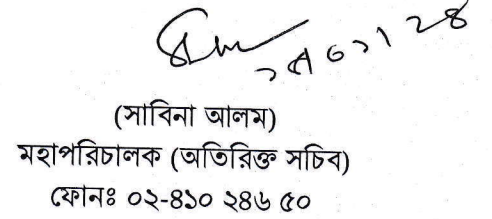 (সাবিনা আলম)
মহাপরিচালক (অতিরিক্ত সচিব)
ফোনঃ ০২-৪১০ ২৪৬ ৫০